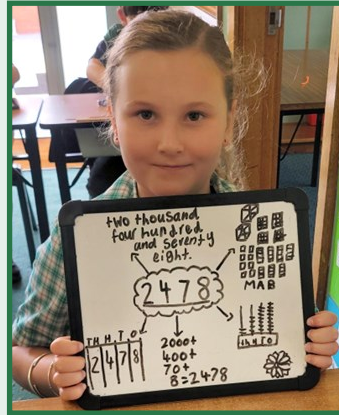 two thousand
four hundred
and seventy
eight.
2478
MAB
TH H T O
2 4 7 8
2000+
400+
70+
8=2478
th h t o